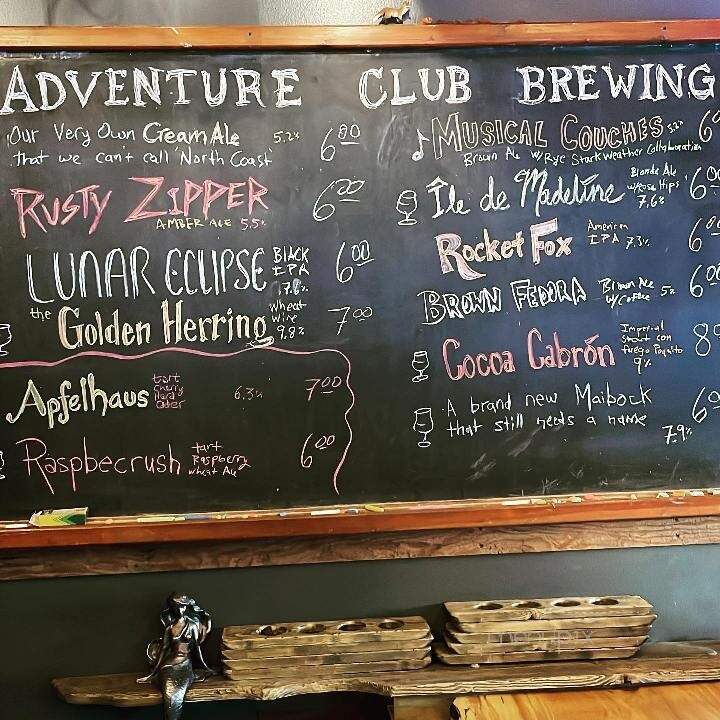 ADVENTURE CLUB BREWING
Our Very Own Cream Ale 5.2% 6.00
that we can't call North Coast
RUSTY ZIPPER 6.00
AMBER ALE 5.5%
LUNAR ECLIPSE BLACK IPA 7.6% 6.00
the Golden Herring Wheat Wine 9.8% 7.00
Apfelhaus tart cherry Hard cider 6.3% 7.00
Raspbecrush tart Raspberry wheat Ale 6.00
MUSICAL COUCHES
Brown Ale w/Rye Starkweather Collaboration
Île de Madeline Blonde Ale w/Rose Hips 7.6%
Rocket Fox American IPA 7.3%
BROWN FEDORA Brown Ale w/Coffee 5%
Cocoa Cabrón Imperial Stout con fuego Poquito 9%
A brand new Maibock
that still needs a name
7.9%